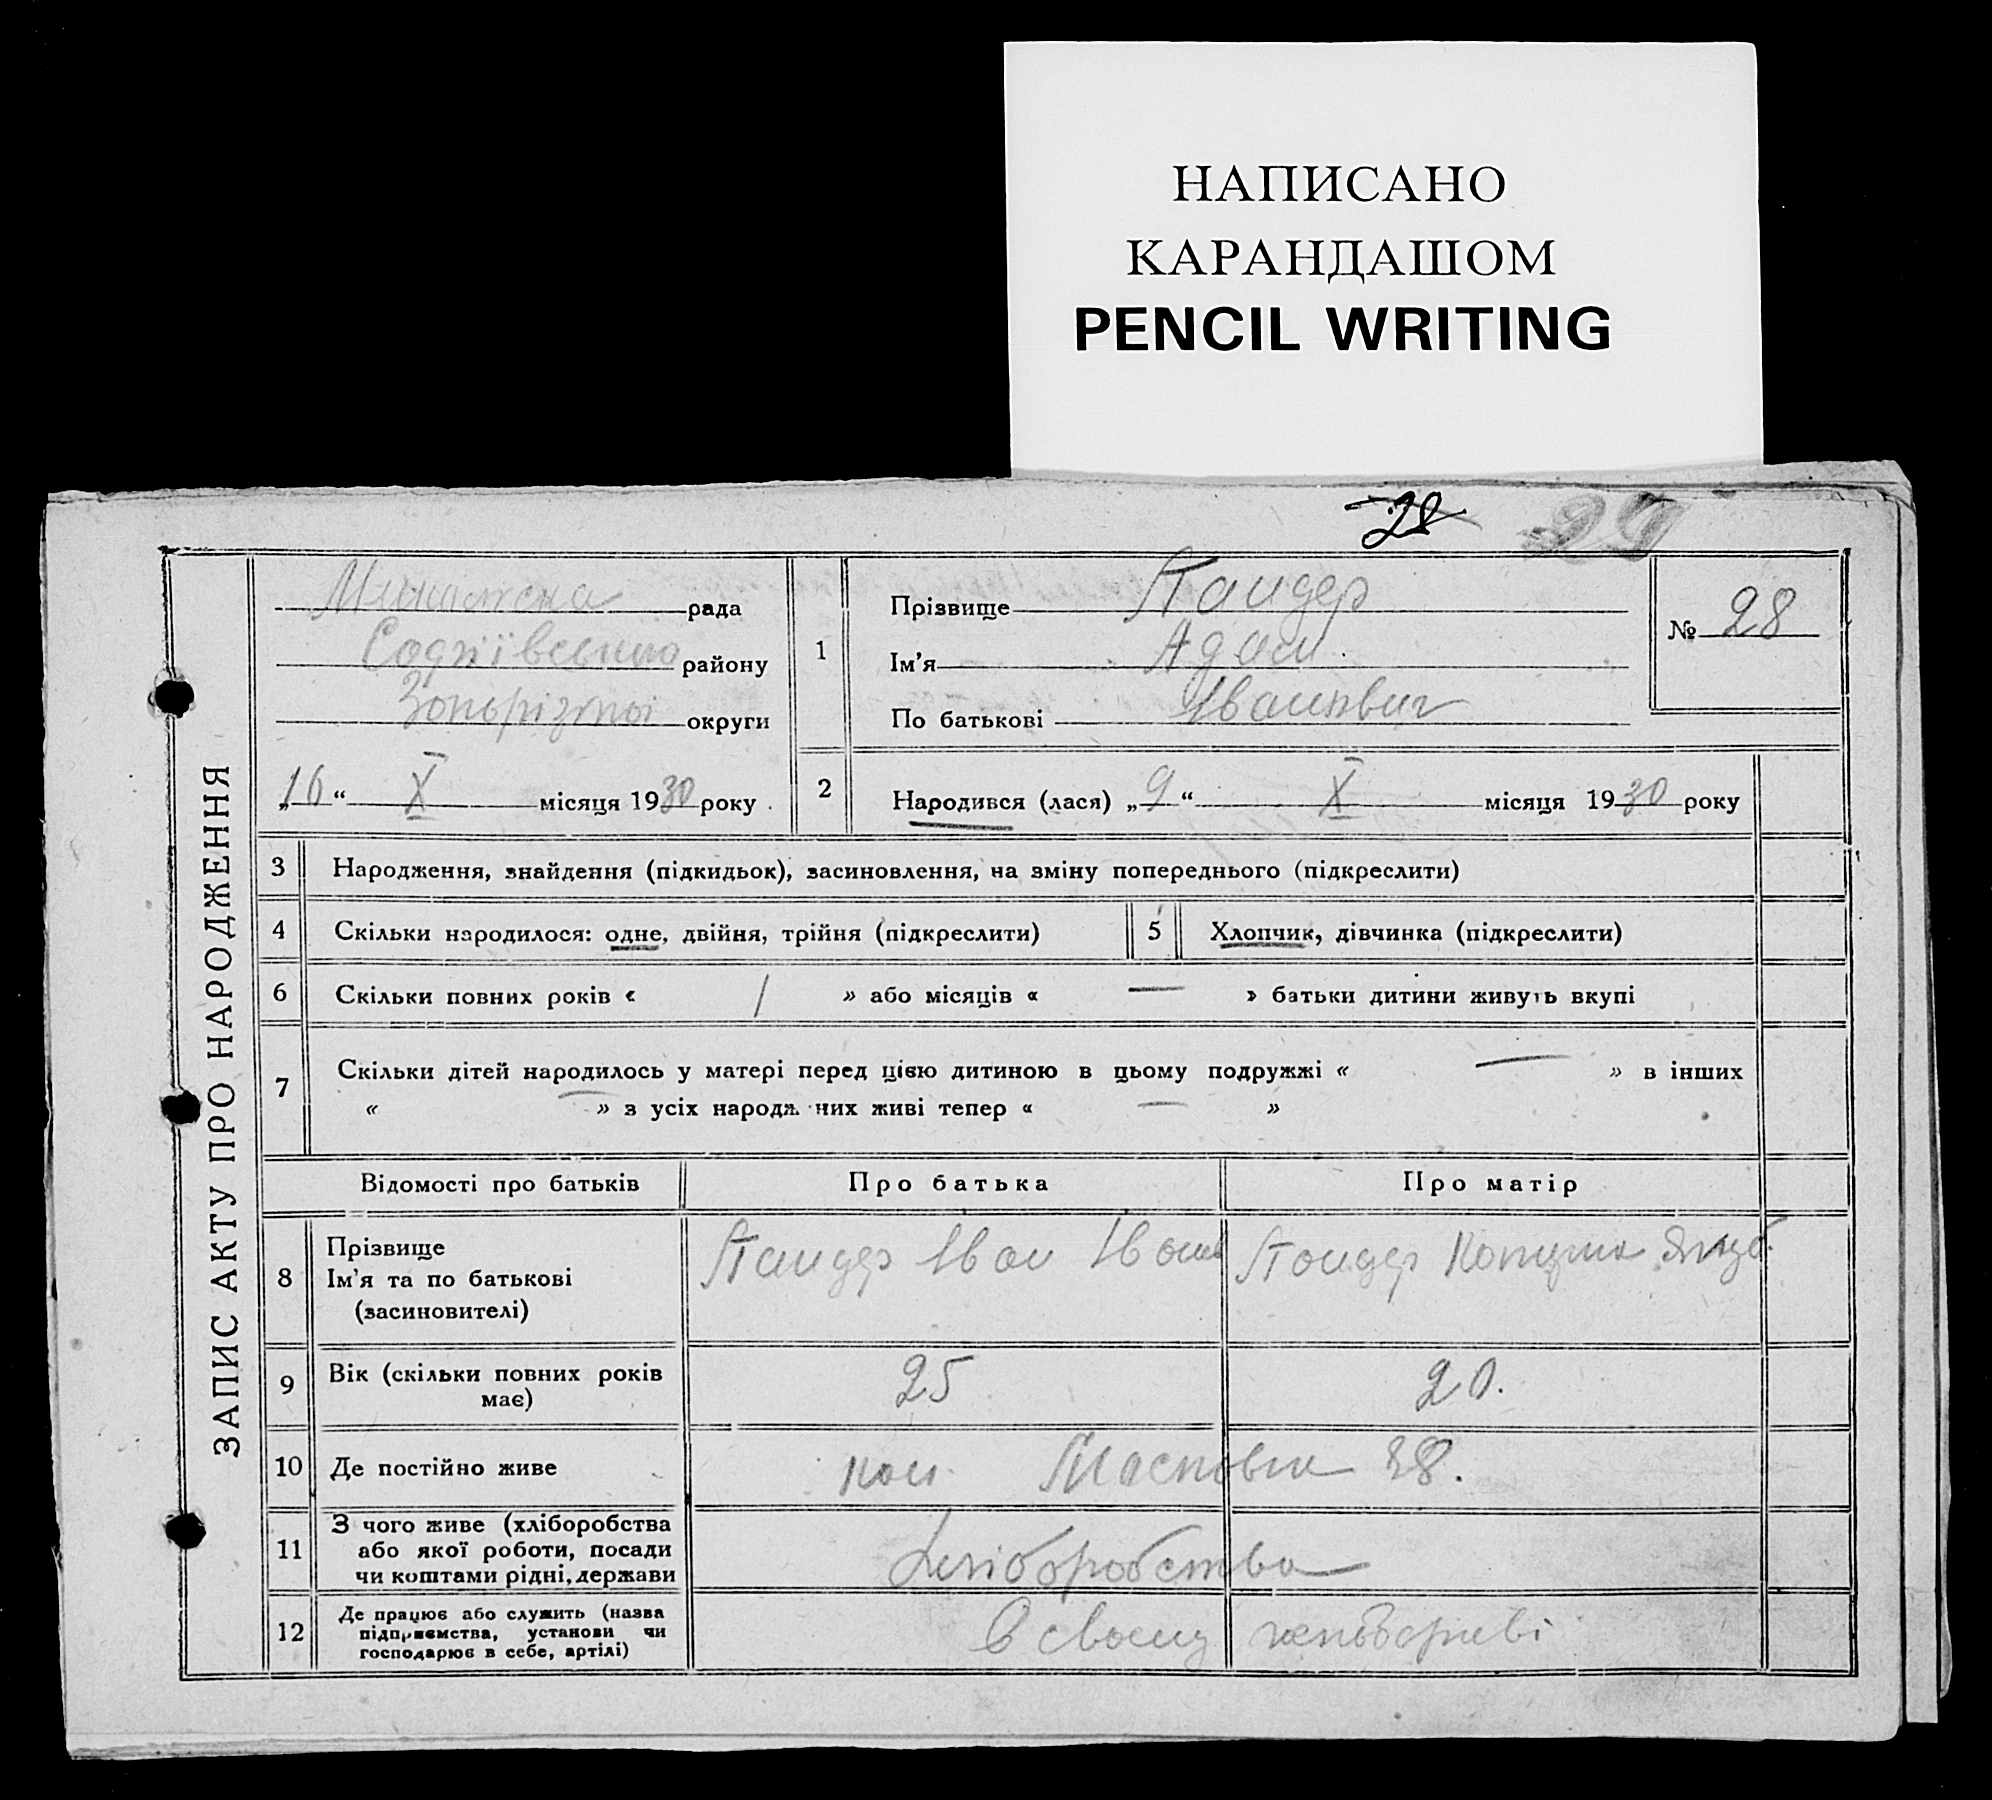 НАПИСАНО
КАРАНДАШОМ
PENCIL WRITING
28 29
ЗАПИС АКТУ ПРО НАРОДЖЕННЯ
рада
Софіївського району
Запорізької округи
„16“ X місяця 1930 року
1
Прізвище
Ім'я Адам
По батькові Іванович
№ 28
2 Народився (лася) „9“ X місяця 1930 року
3 Народження, знайдення (підкидьок), засиновлення, на зміну попереднього (підкреслити)
4 Скільки народилося: одне, двійня, трійня (підкреслити) 5 Хлопчик, дівчинка (підкреслити)
6 Скільки повних років « 1 » або місяців « — » батьки дитини живуть вкупі
7 Скільки дітей народилось у матері перед цією дитиною в цьому подружжі « — » в інших
« — » з усіх народжених живі тепер « — »
Відомості про батьків Про батька Про матір
8 Прізвище
Ім'я та по батькові
(засиновителі)
Іван Іван
9 Вік (скільки повних років
має)
25 20.
10 Де постійно живе кол. 38.
11 З чого живе (хліборобства
або якої роботи, посади
чи коштами рідні, держави
хліборобства
12 Де працює або служить (назва
підприємства, установи чи
господарює в себе, артілі)
В своему